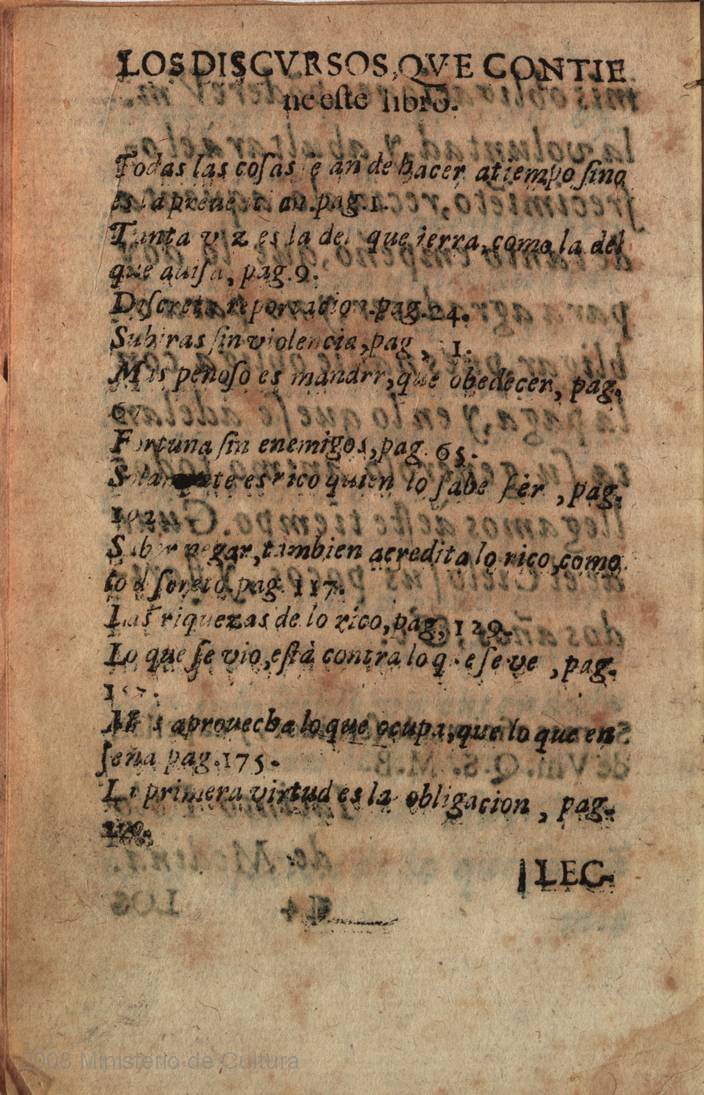 LOS DISCVRSOS, QVE CONTIE
ne este libro.
Todas las cosas se an de hacer a tiempo sino
pag. 1.
Tanta voz es la del que ierra, como la del
que auisa, pag. 9.
Discreta reportacion. pag. 24.
Subiras sin violencia, pag,
Mas penoso es mandar, que obedecer, pag.
Fortuna sin enemigos, pag. 65.
Solamente es rico quien lo sabe ser, pag.
Saber negar, tambien acredita lo rico, como
lo discreto, pag. 117.
Las riquezas de lo rico, pag, 129.
Lo que se vio, està contra lo que se ve, pag.
Mas aprouecha lo que ocupa, que lo que en
seña pag. 175.
La primera virtud es la obligacion, pag.
LEC-
2008 Ministerio de Cultura